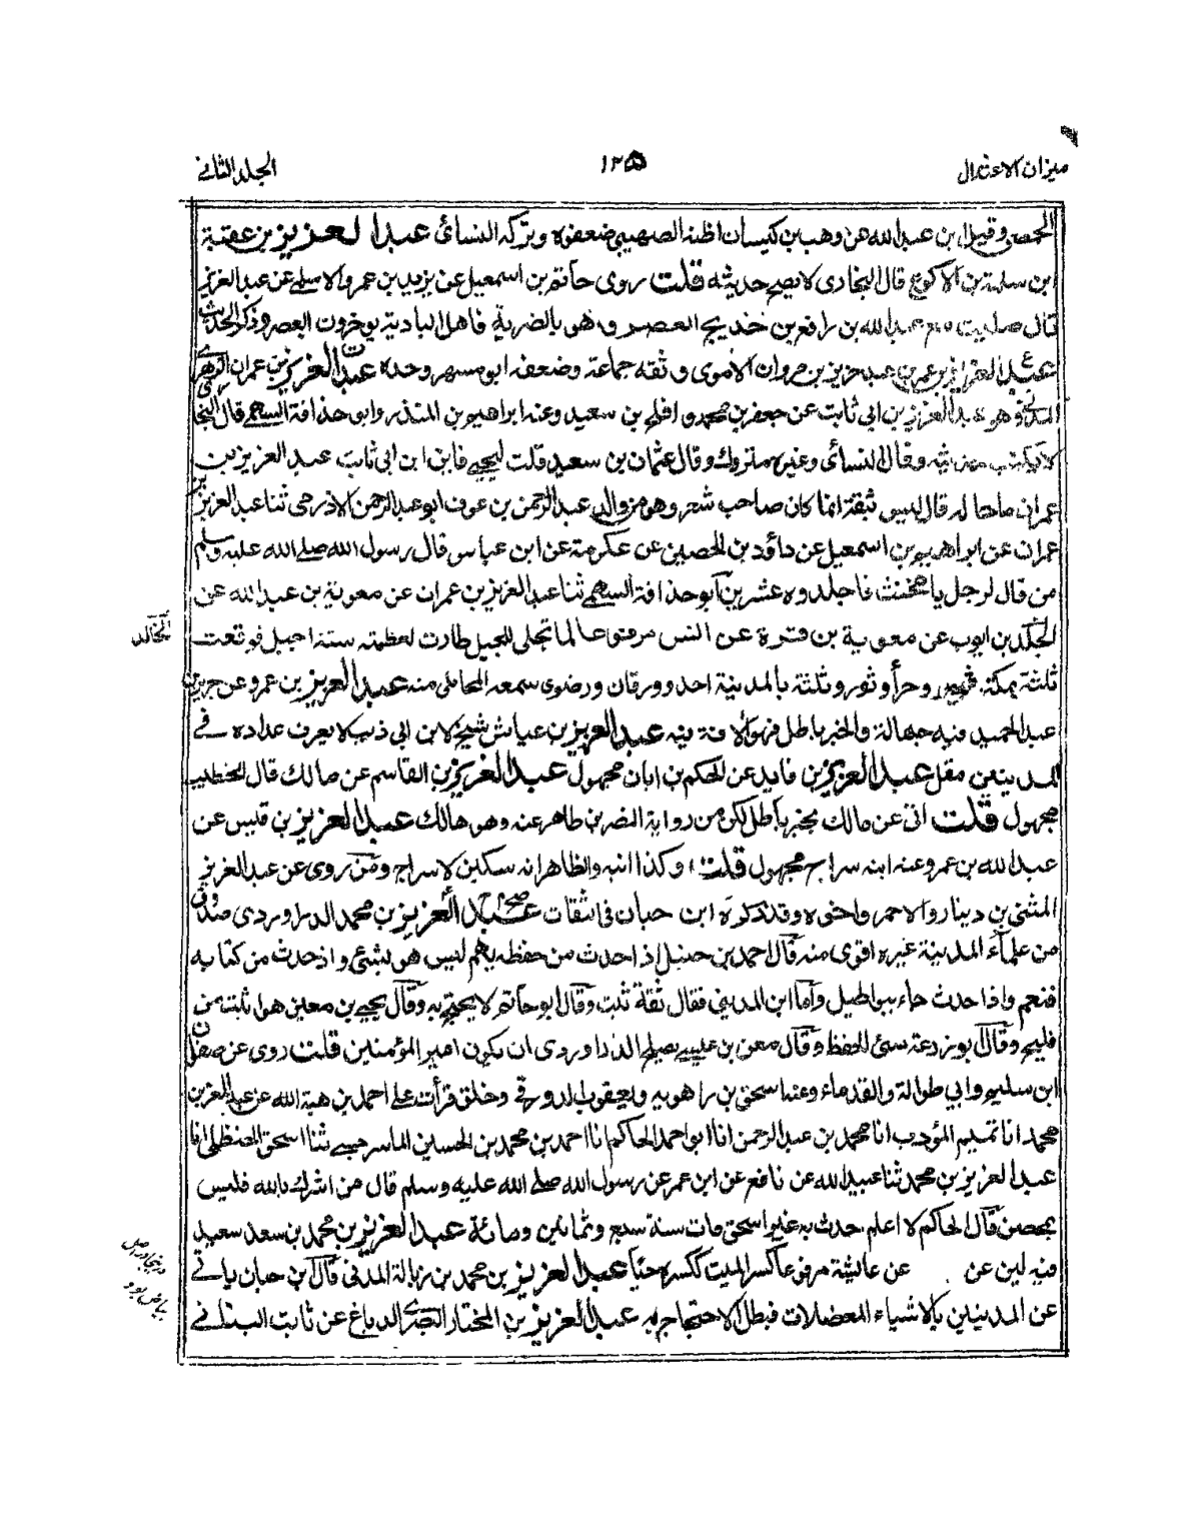 ميزان الاعتدال
١٣٥
الجلد الثاني
الحمصي وقيل ابن عبد الله عن وهب بن كيسان اظنه الصهيبي ضعفوه وتركه النسائى عبد العزيز بن عقبة
ابن سلمة بن الاكوع قال البخارى لا يصح حديثه قلت روى حاتم بن اسمعيل عن يزيد بن عمرو الاسلمے عن عبد العزيز
قال صليت مع عبد الله بن رافع بن خديج العصر وهو بالضرية فاهل البادية يوخرون العصر وذكر الحديث
عبد العزيز بن عمر بن عبد العزيز بن مروان الاموى وثقه جماعة وضعفه ابو مسهر وحده عبد العزيز بن عمران الزهرى
المدنى وهو عبد العزيز بن ابى ثابت عن جعفر بن محمد و افلح بن سعيد وعنه ابراهيم بن المنذر وابو حذافة السهمے قال البخارى
لا يكتب حديثه وقال النسائى وغيره متروك وقال عثمان بن سعيد قلت ليحيے فابن ابى ثابت عبد العزيز بن
عمران ماحاله قال ليس بثقة انما كان صاحب شعر وهو من ولد عبد الرحمن بن عوف ابو عبد الرحمن الاذرمى ثنا عبد العزيز بن
عمران عن ابراهيم بن اسمعيل عن داؤد بن الحصين عن عكرمة عن ابن عباس قال رسول الله صلے الله عليه وسلم
من قال لرجل يا مخنث فاجلدوه عشرين ابو حذافة السهمے ثنا عبد العزيز بن عمران عن معوية بن عبد الله عن
الجلد بن ايوب عن معوية بن قرة عن انس مرفوعا لما تجلى للجبل طارت لعظمته ستة اجبل فوقعت
المخالد
ثلثة بمكة وحرا وثور وثلثة بالمدينة احد وورقان ورضوى سمعه المحاملى منه عبد العزيز بن عمرو عن جرير بن
عبد الحميد فيه جهالة والخبر باطل فهو الآفة فيه عبد العزيز بن عياش شيخ لابن ابى ذئب لا يعرف عداده فے
المدنيين مقل عبد العزيز بن فايد عن الحكم بن ابان مجهول عبد العزيز بن القاسم عن مالك قال الخطيب
مجهول قلت اتى عن مالك بخبر باطل لكن من رواية النضر بن طاهر عنه وهو هالك عبد العزيز بن قيس عن
عبد الله بن عمرو عنه ابنه سراج مجهول قلت وكذا ابنه والظاهر انه سكين لا سراج وممن روى عن عبد العزيز
المثنى بن دينار والاحمر واخوه وقد ذكره ابن حبان فى الثقات صح عبد العزيز بن محمد الدراوردى صدوق
من علماء المدينة غيره اقوى منه قال احمد بن حنبل اذا حدث من حفظه يهم ليس هو بشئ واذ حدث من كتابه
فنعم واذا حدث جاء ببواطيل واما ابن المدينى فقال ثقة ثبت وقال ابو حاتم لا يحتج به وقال يحيے بن معين هو اثبت من
فليح وقال ابو زرعة سئ الحفظ وقال معن بن عيسے يصلح الدراوردى ان يكون امير المؤمنين قلت روى عن صفوان
ابن سليم وابي طوالة والقدماء وعنه اسحق بن راهويه ويعقوب الدورقى وخلق قرأت على احمد بن هبة الله عن عبد العزيز بن
محمد انا تميم المؤدب انا محمد بن عبد الرحمن انا ابو احمد الحاكم انا احمد بن محمد بن الحسين الماسرجسے ثنا اسحق الحنظلى انا
عبد العزيز بن محمد ثنا عبيد الله عن نافع عن ابن عمر عن رسول الله صلے الله عليه وسلم قال من اشرك بالله فليس
بمحصن قال الحاكم لا اعلم حدث به غير اسحق مات سنة سبع وثمانين ومائة عبد العزيز بن محمد بن سعد سعيد
فيه لين عن عن عائشة مرفوعا كسر الميت ككسره حيا عبد العزيز بن محمد بن زبالة المدنى قال ابن حبان ياتے
عن المدنيين بالاشياء المعضلات فبطل الاحتجاج به عبد العزيز بن المختار البصرى الدباغ عن ثابت البنانے